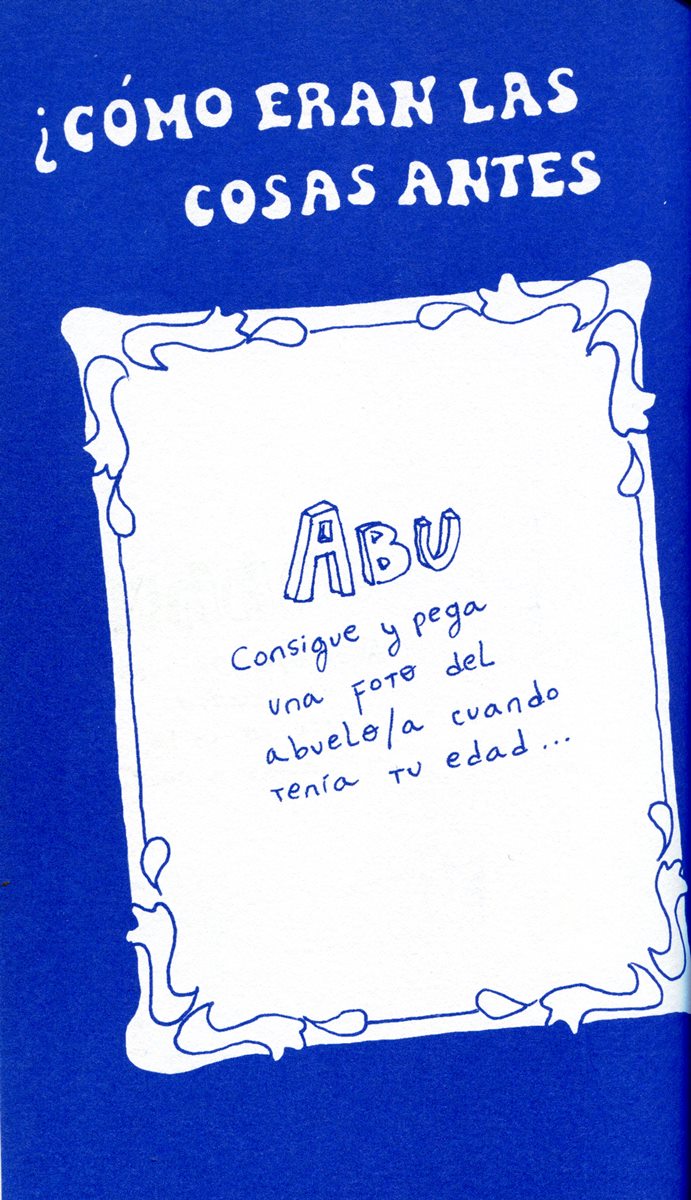 ¿CÓMO ERAN LAS
COSAS ANTES
ABU
Consigue y pega
una foto del
abuelo/a cuando
tenía tu edad...